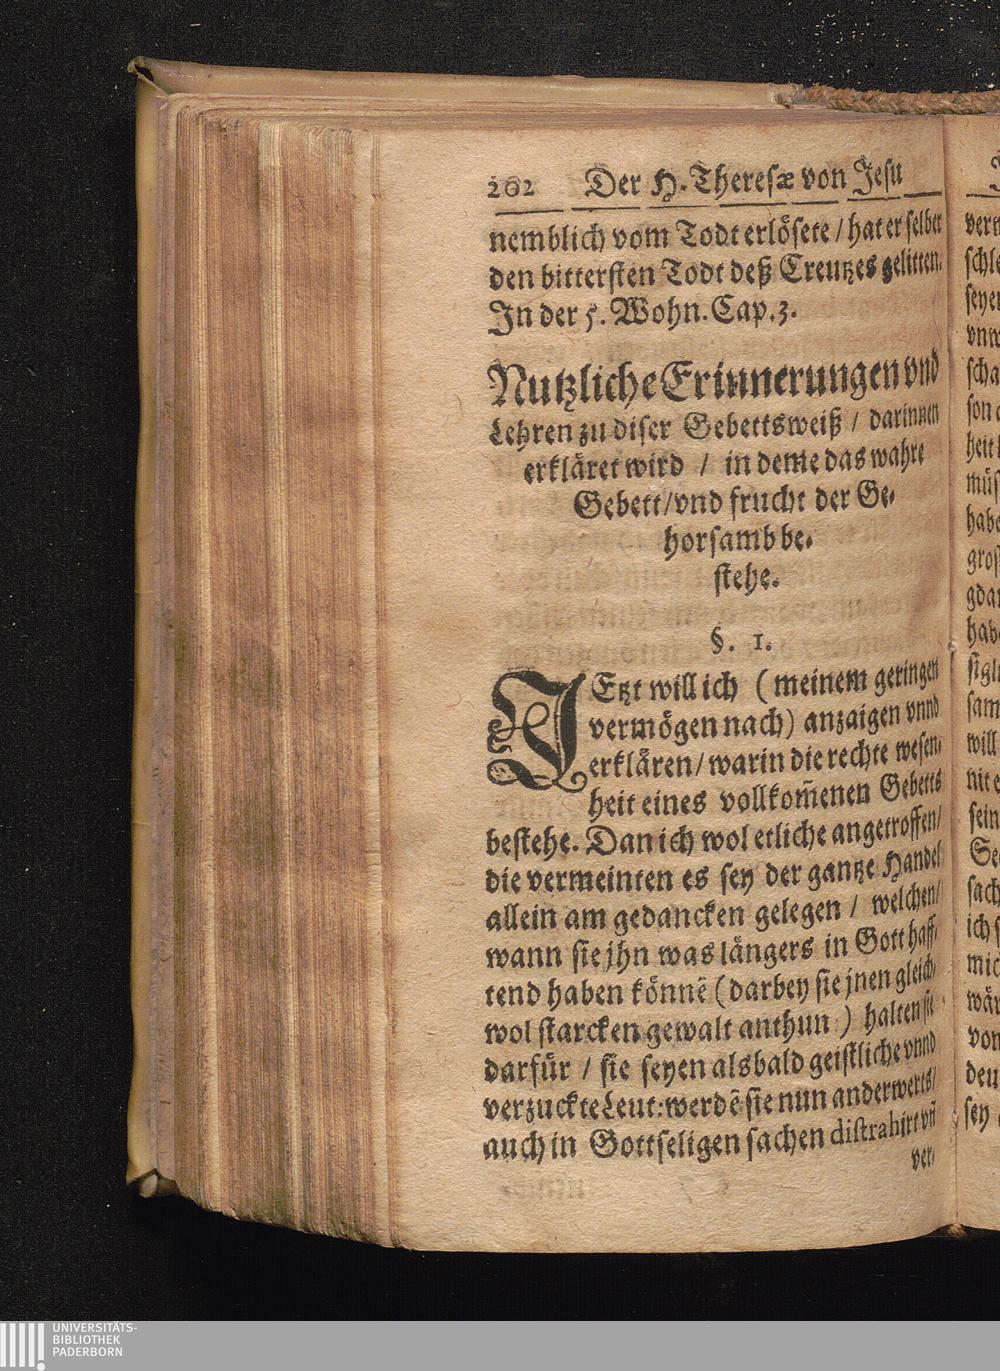 202 Der H. Theresæ von Jesu
nemblich vom Todt erlösete / hat er selber
den bittersten Todt deß Creutzes gelitten.
In der 5. Wohn. Cap. 3.
Nutzliche Erinnerungen vnd
Lehren zu diser Gebettsweiß / darinnen
erkläret wird / in deme das wahre
Gebett / vnd frucht der Ge-
horsamb be-
stehe.
§. 1.
JEtzt will ich (meinem geringen
vermögen nach) anzaigen vnnd
erklären / warin die rechte wesen-
heit eines vollkom̃enen Gebetts
bestehe. Dan ich wol etliche angetroffen /
die vermeinten es sey der gantze Handel
allein am gedancken gelegen / welchen /
wann sie jhn was längers in Gott hafft-
tend haben könnẽ (darbey sie jnen gleich
wol starcken gewalt anthun) halten sie
darfür / sie seyen alsbald geistliche vnnd
verzuckte Leut: werdẽ sie nun anderwerts /
auch in Gottseligen sachen distrahirt vñ
ver-
UNIVERSITÄTS-
BIBLIOTHEK
PADERBORN